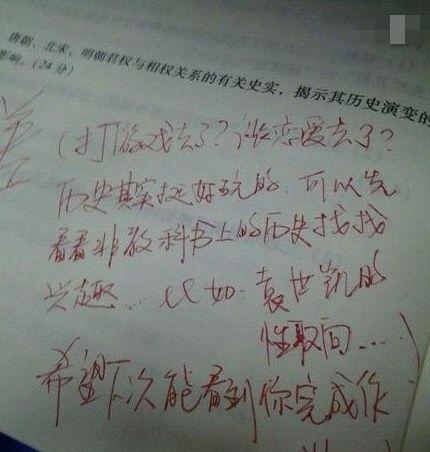 唐朝、北宋、明朝君权与相权关系的有关史实，揭示其历史演变的
影响。(24分)
差
(打游戏去了？谈恋爱去了？
历史其实挺好玩的，可以先
看看非教科书上的历史找找
兴趣... 比如：袁世凯的
性取向...)
希望下次能看到你完成作